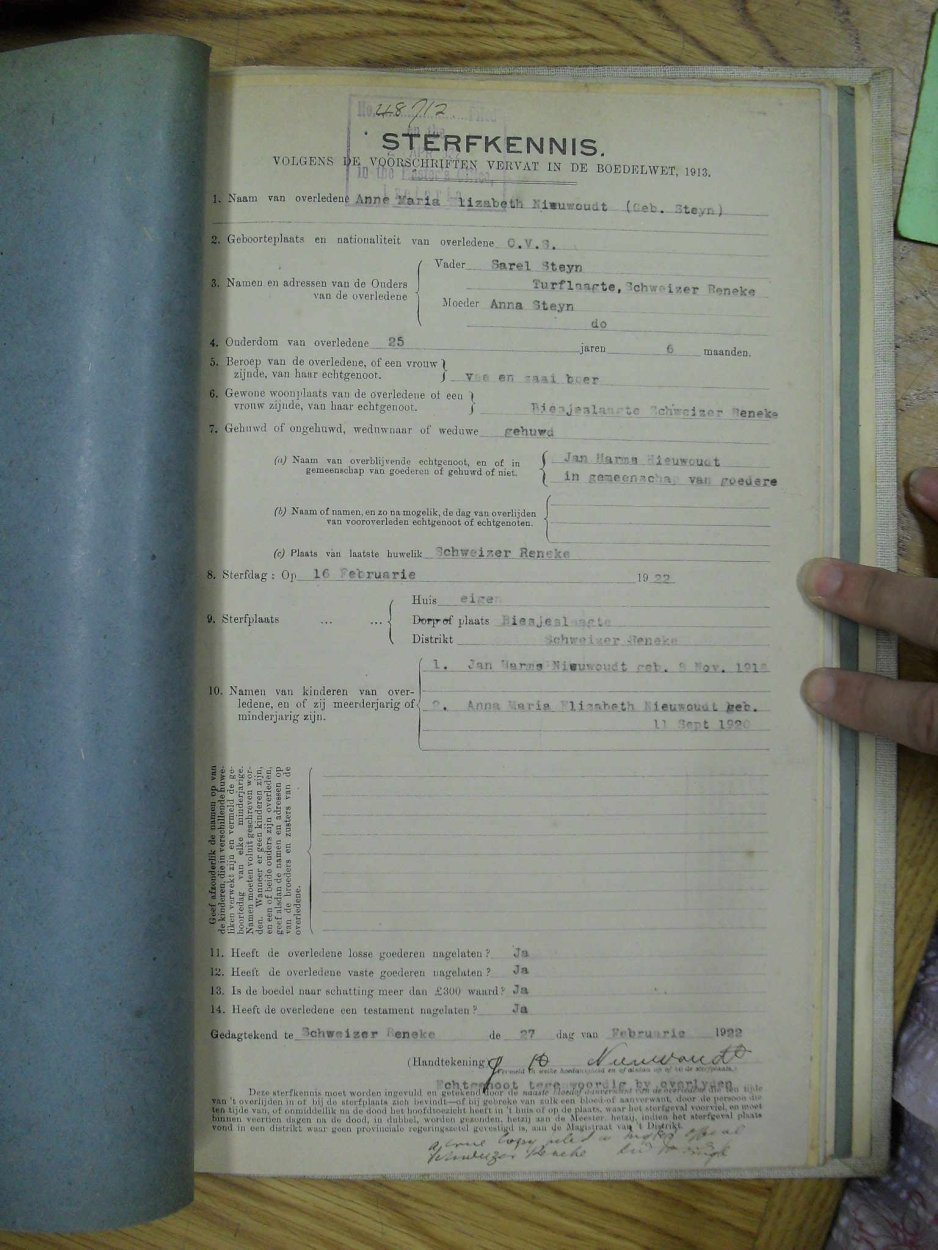 No. 48712
STERFKENNIS.
VOLGENS DE VOORSCHRIFTEN VERVAT IN DE BOEDELWET, 1913.
1. Naam van overledene Anne Maria lizabeth Nieuwoudt (Geb. Steyn)
2. Geboorteplaats en nationaliteit van overledene O.V.S.
3. Namen en adressen van de Ouders van de overledene
Vader Sarel Steyn
Turflaagte, Schweizer Reneke
Moeder Anna Steyn
do
4. Ouderdom van overledene 25 jaren 6 maanden.
5. Beroep van de overledene, of een vrouw
zijnde, van haar echtgenoot. vee en zaai boer
6. Gewone woonplaats van de overledene of een
vrouw zijnde, van haar echtgenoot. Biesjeslaagte Schweizer Reneke
7. Gehuwd of ongehuwd, weduwnaar of weduwe gehuwd
(a) Naam van overblijvende echtgenoot, en of in
gemeenschap van goederen of gehuwd of niet.
Jan Harms Nieuwoudt
in gemeenschap van goedere
(b) Naam of namen, en zo na mogelik, de dag van overlijden
van vooroverleden echtgenoot of echtgenoten.
(c) Plaats van laatste huwelik Schweizer Reneke
8. Sterfdag: Op 16 Februarie 1922
9. Sterfplaats ... ...
Huis eigen
Dorp of plaats Biesjeslaagte
Distrikt Schweizer Reneke
10. Namen van kinderen van over-
ledene, en of zij meerderjarig of
minderjarig zijn.
1. Jan Harms Nieuwoudt geb. Nov.
2. Anna Maria Elizabeth Nieuwoudt geb.
11 Sept 1920
Geef afzonderlik de namen op van
de kinderen, die in verschillende huwe-
liken verwekt zijn en vermeld de ge-
boortedag van elke minderjarige.
Namen moeten voluit geschreven wor-
den. Wanneer er geen kinderen zijn,
en een of beide ouders zijn overleden,
geef alsdan de namen en adressen op
van de broeders en zusters van de
overledene.
11. Heeft de overledene losse goederen nagelaten? Ja
12. Heeft de overledene vaste goederen nagelaten? Ja
13. Is de boedel naar schatting meer dan £300 waard? Ja
14. Heeft de overledene een testament nagelaten? Ja
Gedagtekend te Schweizer Reneke de 27 dag van Februarie 1922
(Handtekening) J H Nieuwoudt
Echtgenoot tegenwoordig by overlyden
Deze sterfkennis moet worden ingevuld en getekend door de naaste bloedig aanverwant van de overledene ten tijde
van 't overlijden in of bij de sterfplaats zich bevindt—of bij gebreke van zulk een bloed of aanverwant, door de persoon die
ten tijde van, of onmiddellik na de dood het hoofdtoezicht heeft in 't huis of op de plaats, waar het sterfgeval voorviel, en moet
binnen veertien dagen na de dood, in dubbel, worden gezonden, hetzij aan de Meester, hetzij, indien het sterfgeval plaats
vond in een distrikt waar geen provinciale regeringszetel gevestigd is, aan de Magistraat van 't Distrikt.
a true copy
Schweizer Reneke